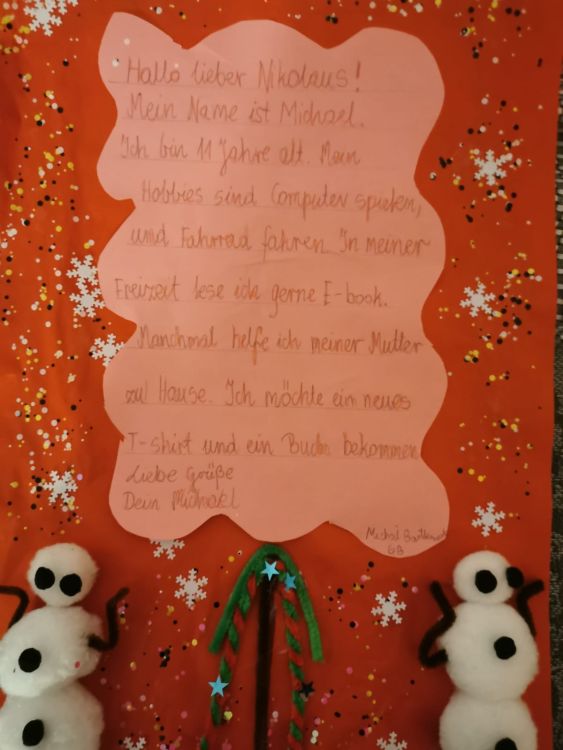 Hallo lieber Nikolaus!
Mein Name ist Michael.
Ich bin 11 Jahre alt. Mein
Hobbies sind Computer spielen,
und Fahrrad fahren In meiner
Freizeit lese ich gerne E-book.
Manchmal helfe ich meiner Mutter
zu Hause. Ich möchte ein neues
T-shirt und ein Buch bekommen
Liebe Grüße
Dein Michael
Michał
6B